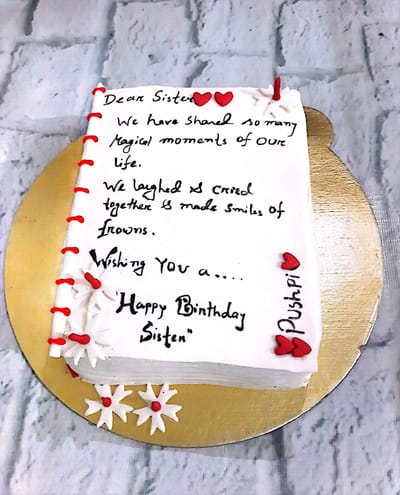 Dear Sister
We have shared so many
Magical moments of our
life.
We laughed & cried
together & made smiles of
frowns.
Wishing You a....
"Happy Birthday
Sister"
Pushpi